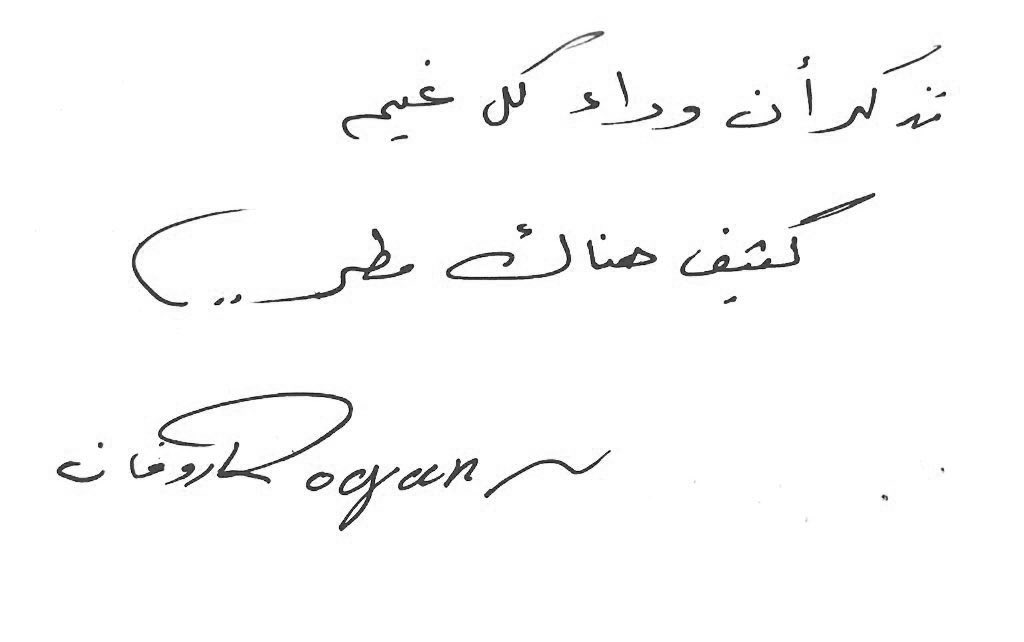 تذكر أن وراء كل غيم
كثيف هناك مطر ..